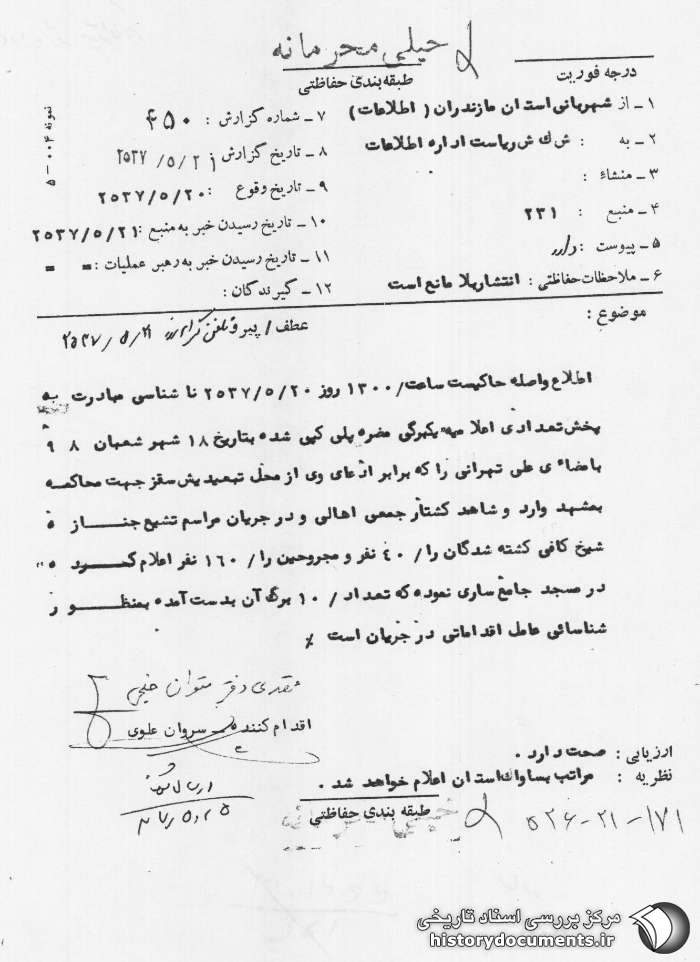 خیلی محرمانه
طبقه بندی حفاظتی
درجه فوریت
۱ـ از شهربانی استان مازندران (اطلاعات)
۲ـ به : ش ک ش ریاست اداره اطلاعات
۳ـ منشاء :
۴ـ منبع : ۲۳۱
۵ـ پیوست : دارد
۶ـ ملاحظات حفاظتی : انتشار بلا مانع است
۷ـ شماره گزارش : ۴۵۰
۸ـ تاریخ گزارش : ۲۵۳۷/۵/۲۱
۹ـ تاریخ وقوع : ۲۵۳۷/۵/۲۰
۱۰ـ تاریخ رسیدن خبر به منبع : ۲۵۳۷/۵/۲۱
۱۱ـ تاریخ رسیدن خبر به رهبر عملیات : = =
۱۲ـ گیرندگان :
نمونه ۰۰۴ـ۵
موضوع :
عطف / پیرو ۲۵۳۷/۵/۲۱
اطلاع واصله حاکیست ساعت/۱۳۰۰ روز ۲۵۳۷/۵/۲۰ ناشناسی مبادرت به
پخش تعدادی اعلامیه یکبرگی مضره پلی کپی شده بتاریخ ۱۸ شهر شعبان ۹۸
بامضاء ی علی تهرانی را که برابر ادعای وی از محل تبعیدیش سقز جهت محاکمه
بمشهد وارد و شاهد کشتار جمعی اهالی و در جریان مراسم تشیع جنازه
شیخ کافی کشته شدگان را/۴۰ نفر و مجروحین را/۱۶۰ نفر اعلام کرده
در مسجد جامع ساری نموده که تعداد/۱۰ برگ آن بدست آمده بمنظور
شناسائی عامل اقداماتی در جریان است ٪
اقدام کننده سروان علوی
ارزیابی : صحت دارد .
نظریه : مراتب بساواک استان اعلام خواهد شد .
طبقه بندی حفاظتی
خیلی محرمانه
۱۷۱-۲۱-۵۲۶
مرکز بررسی اسناد تاریخی
historydocuments.ir